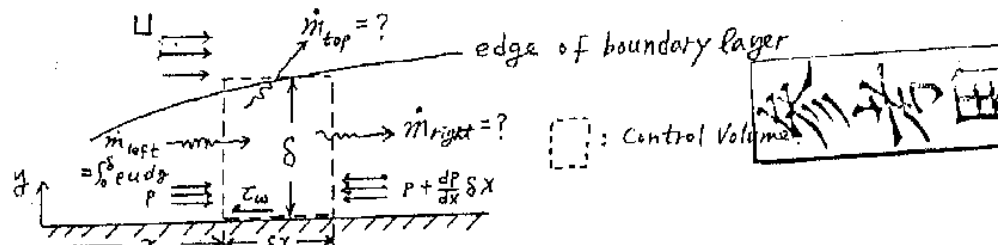 U
ṁtop = ?
edge of boundary layer
ṁleft
= ∫₀^δ ρudy
ṁright = ?
: Control Volume.
δ
y
P
τw
P + dp/dx δx
x
δx